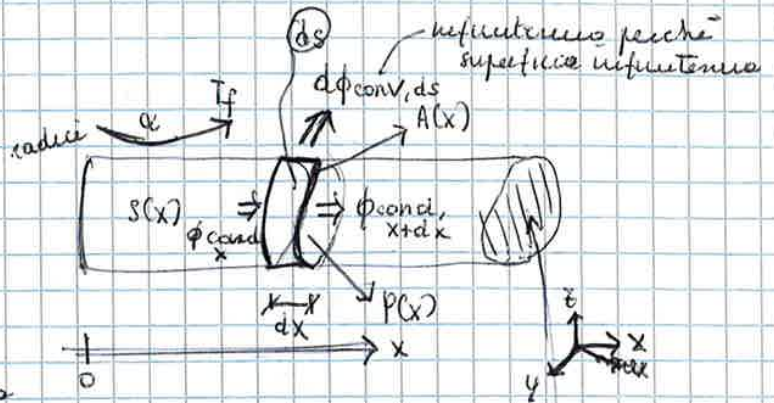 ds
infinitesimo perché
superficie infinitesima
dϕconv,ds
Tf
α
radici
A(x)
S(x)
ϕcond
x
ϕcond,
x+dx
P(x)
dx
x
0
z
x
y